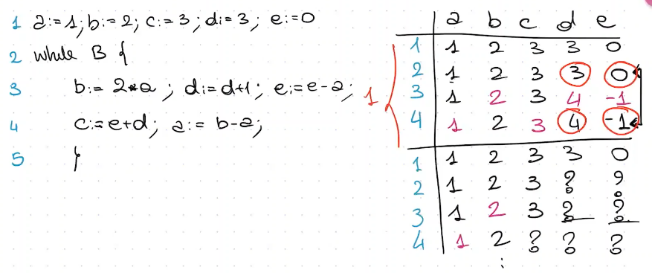 1 a:=1; b:=2; c:=3; d:=3; e:=0
2 while B {
3 b:=2*a; d:=d+1; e:=e-a;
4 c:=e+d; a:=b-a;
5 }
a b c d e
1 1 2 3 3 0
2 1 2 3 3 0
1
3 1 2 3 4 -1
4 1 2 3 4 -1
1 1 2 3 3 0
2 1 2 3 ? ?
3 1 2 3 ? ?
4 1 2 ? ? ?
: